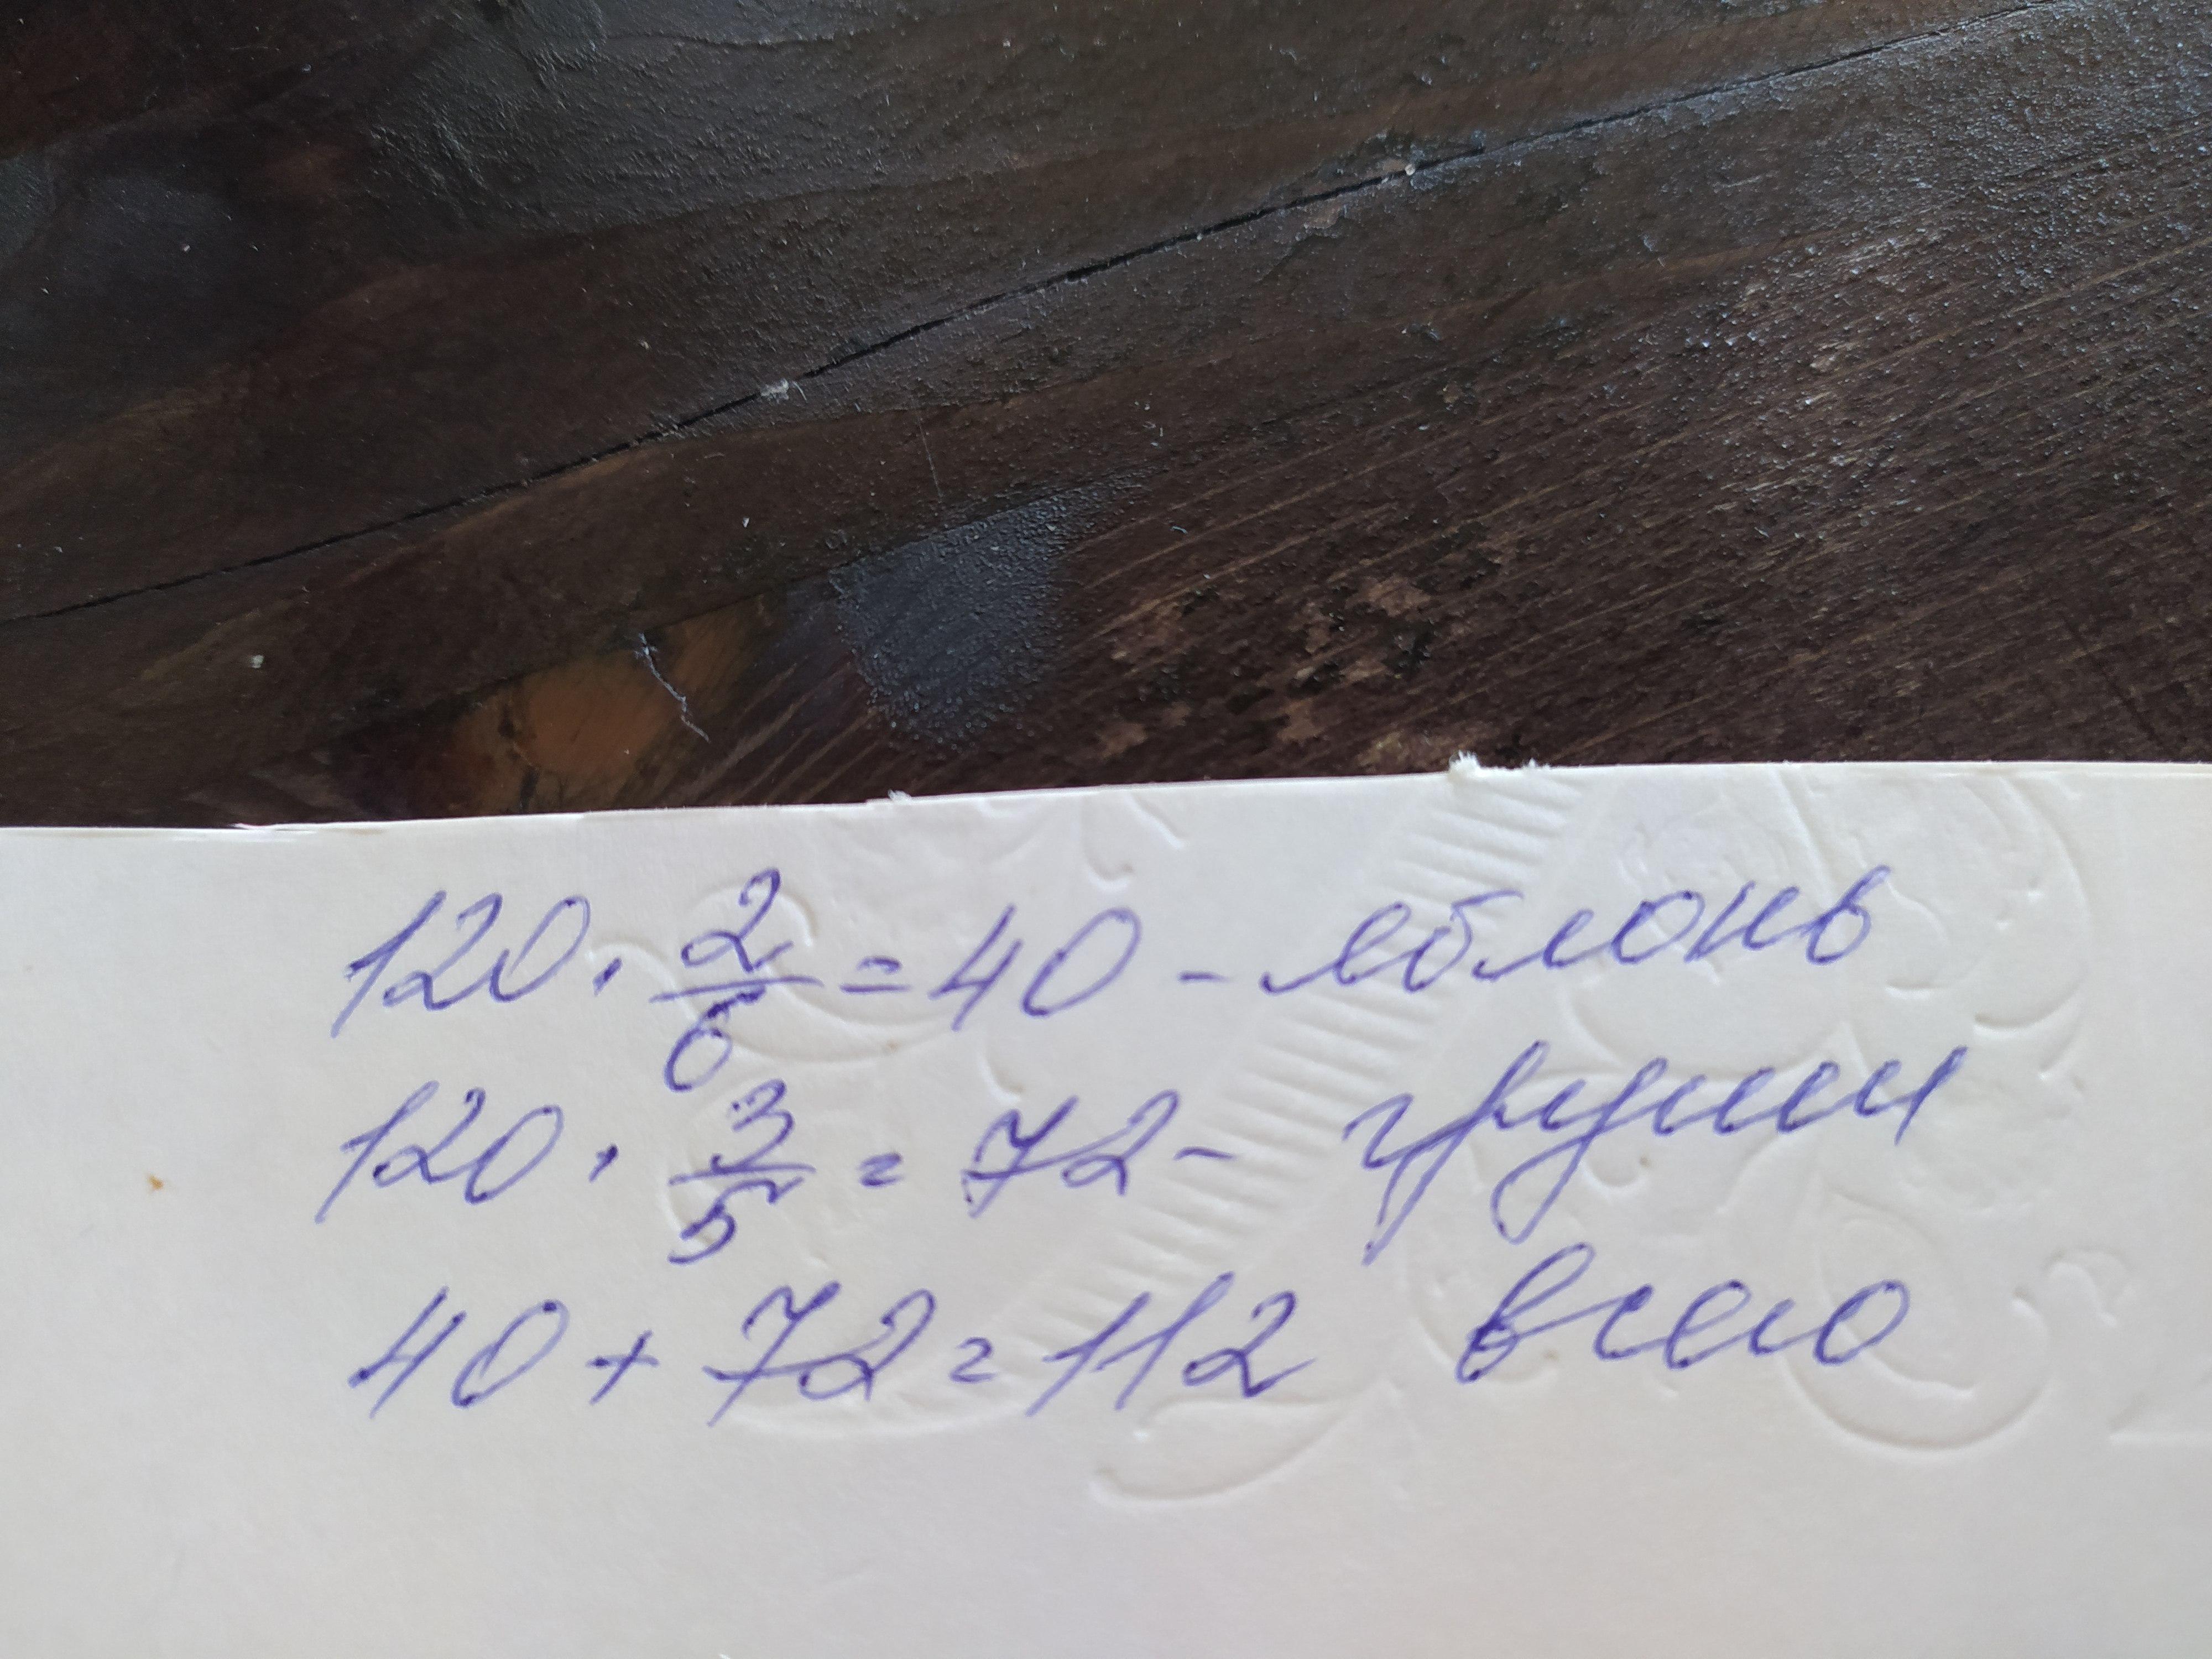 120 · 2/6 = 40 - яблонь
120 · 3/5 = 72 - груши
40 + 72 = 112 всего